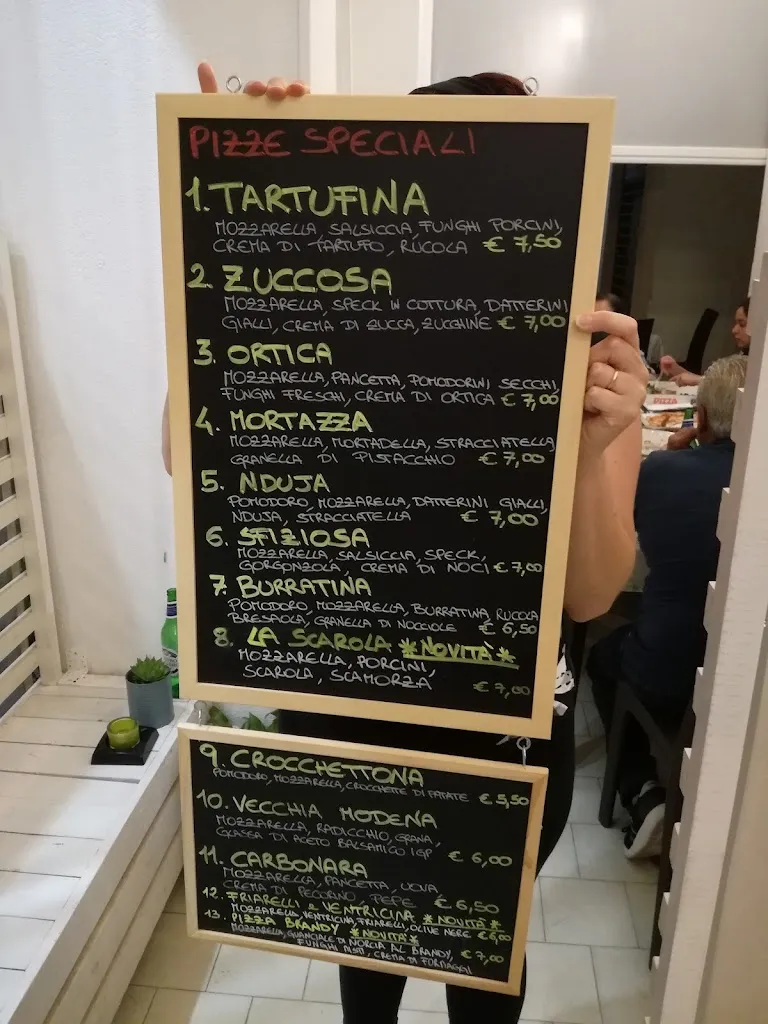 PIZZE SPECIALI
1. TARTUFINA
MOZZARELLA, SALSICCIA, FUNGHI PORCINI,
CREMA DI TARTUFO, RUCOLA € 7,50
2. ZUCCOSA
MOZZARELLA, SPECK IN COTTURA, DATTERINI
GIALLI, CREMA DI ZUCCA, ZUCCHINE € 7,00
3. ORTICA
MOZZARELLA, PANCETTA, POMODORINI SECCHI,
FUNGHI FRESCHI, CREMA DI ORTICA € 7,00
4. MORTAZZA
MOZZARELLA, MORTADELLA, STRACCIATELLA,
GRANELLA DI PISTACCHIO € 7,00
5. NDUJA
POMODORO, MOZZARELLA, DATTERINI GIALLI,
NDUJA, STRACCIATELLA € 7,00
6. SFIZIOSA
MOZZARELLA, SALSICCIA, SPECK,
GORGONZOLA, CREMA DI NOCI € 7,00
7. BURRATINA
POMODORO, MOZZARELLA, BURRATINA, RUCOLA
BRESAOLA, GRANELLA DI NOCCIOLE € 6,50
8. LA SCAROLA *NOVITA'*
MOZZARELLA, PORCINI,
SCAROLA, SCAMORZA € 7,00
9. CROCCHETTONA
POMODORO, MOZZARELLA, CROCCHETTE DI PATATE € 5,50
10. VECCHIA MODENA
MOZZARELLA, RADICCHIO, GRANA,
GLASSA DI ACETO BALSAMICO IGP € 6,00
11. CARBONARA
MOZZARELLA, PANCETTA, UOVA,
CREMA DI PECORINO, PEPE € 6,50
12. FRIARELLI E VENTRICINA *NOVITA'*
MOZZARELLA, VENTRICINA, FRIARELLI, OLIVE NERE € 6,00
13. PIZZA BRANDY *NOVITA'*
MOZZARELLA, GUANCIALE DI NORCIA AL BRANDY, € 7,00
FUNGHI MISTI, CREMA DI FORMAGGI
PIZZA